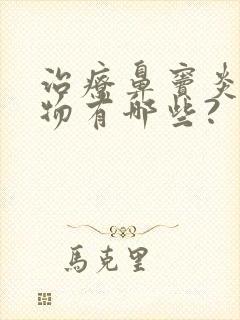 治療鼻竇炎
物有哪些?
馬克里